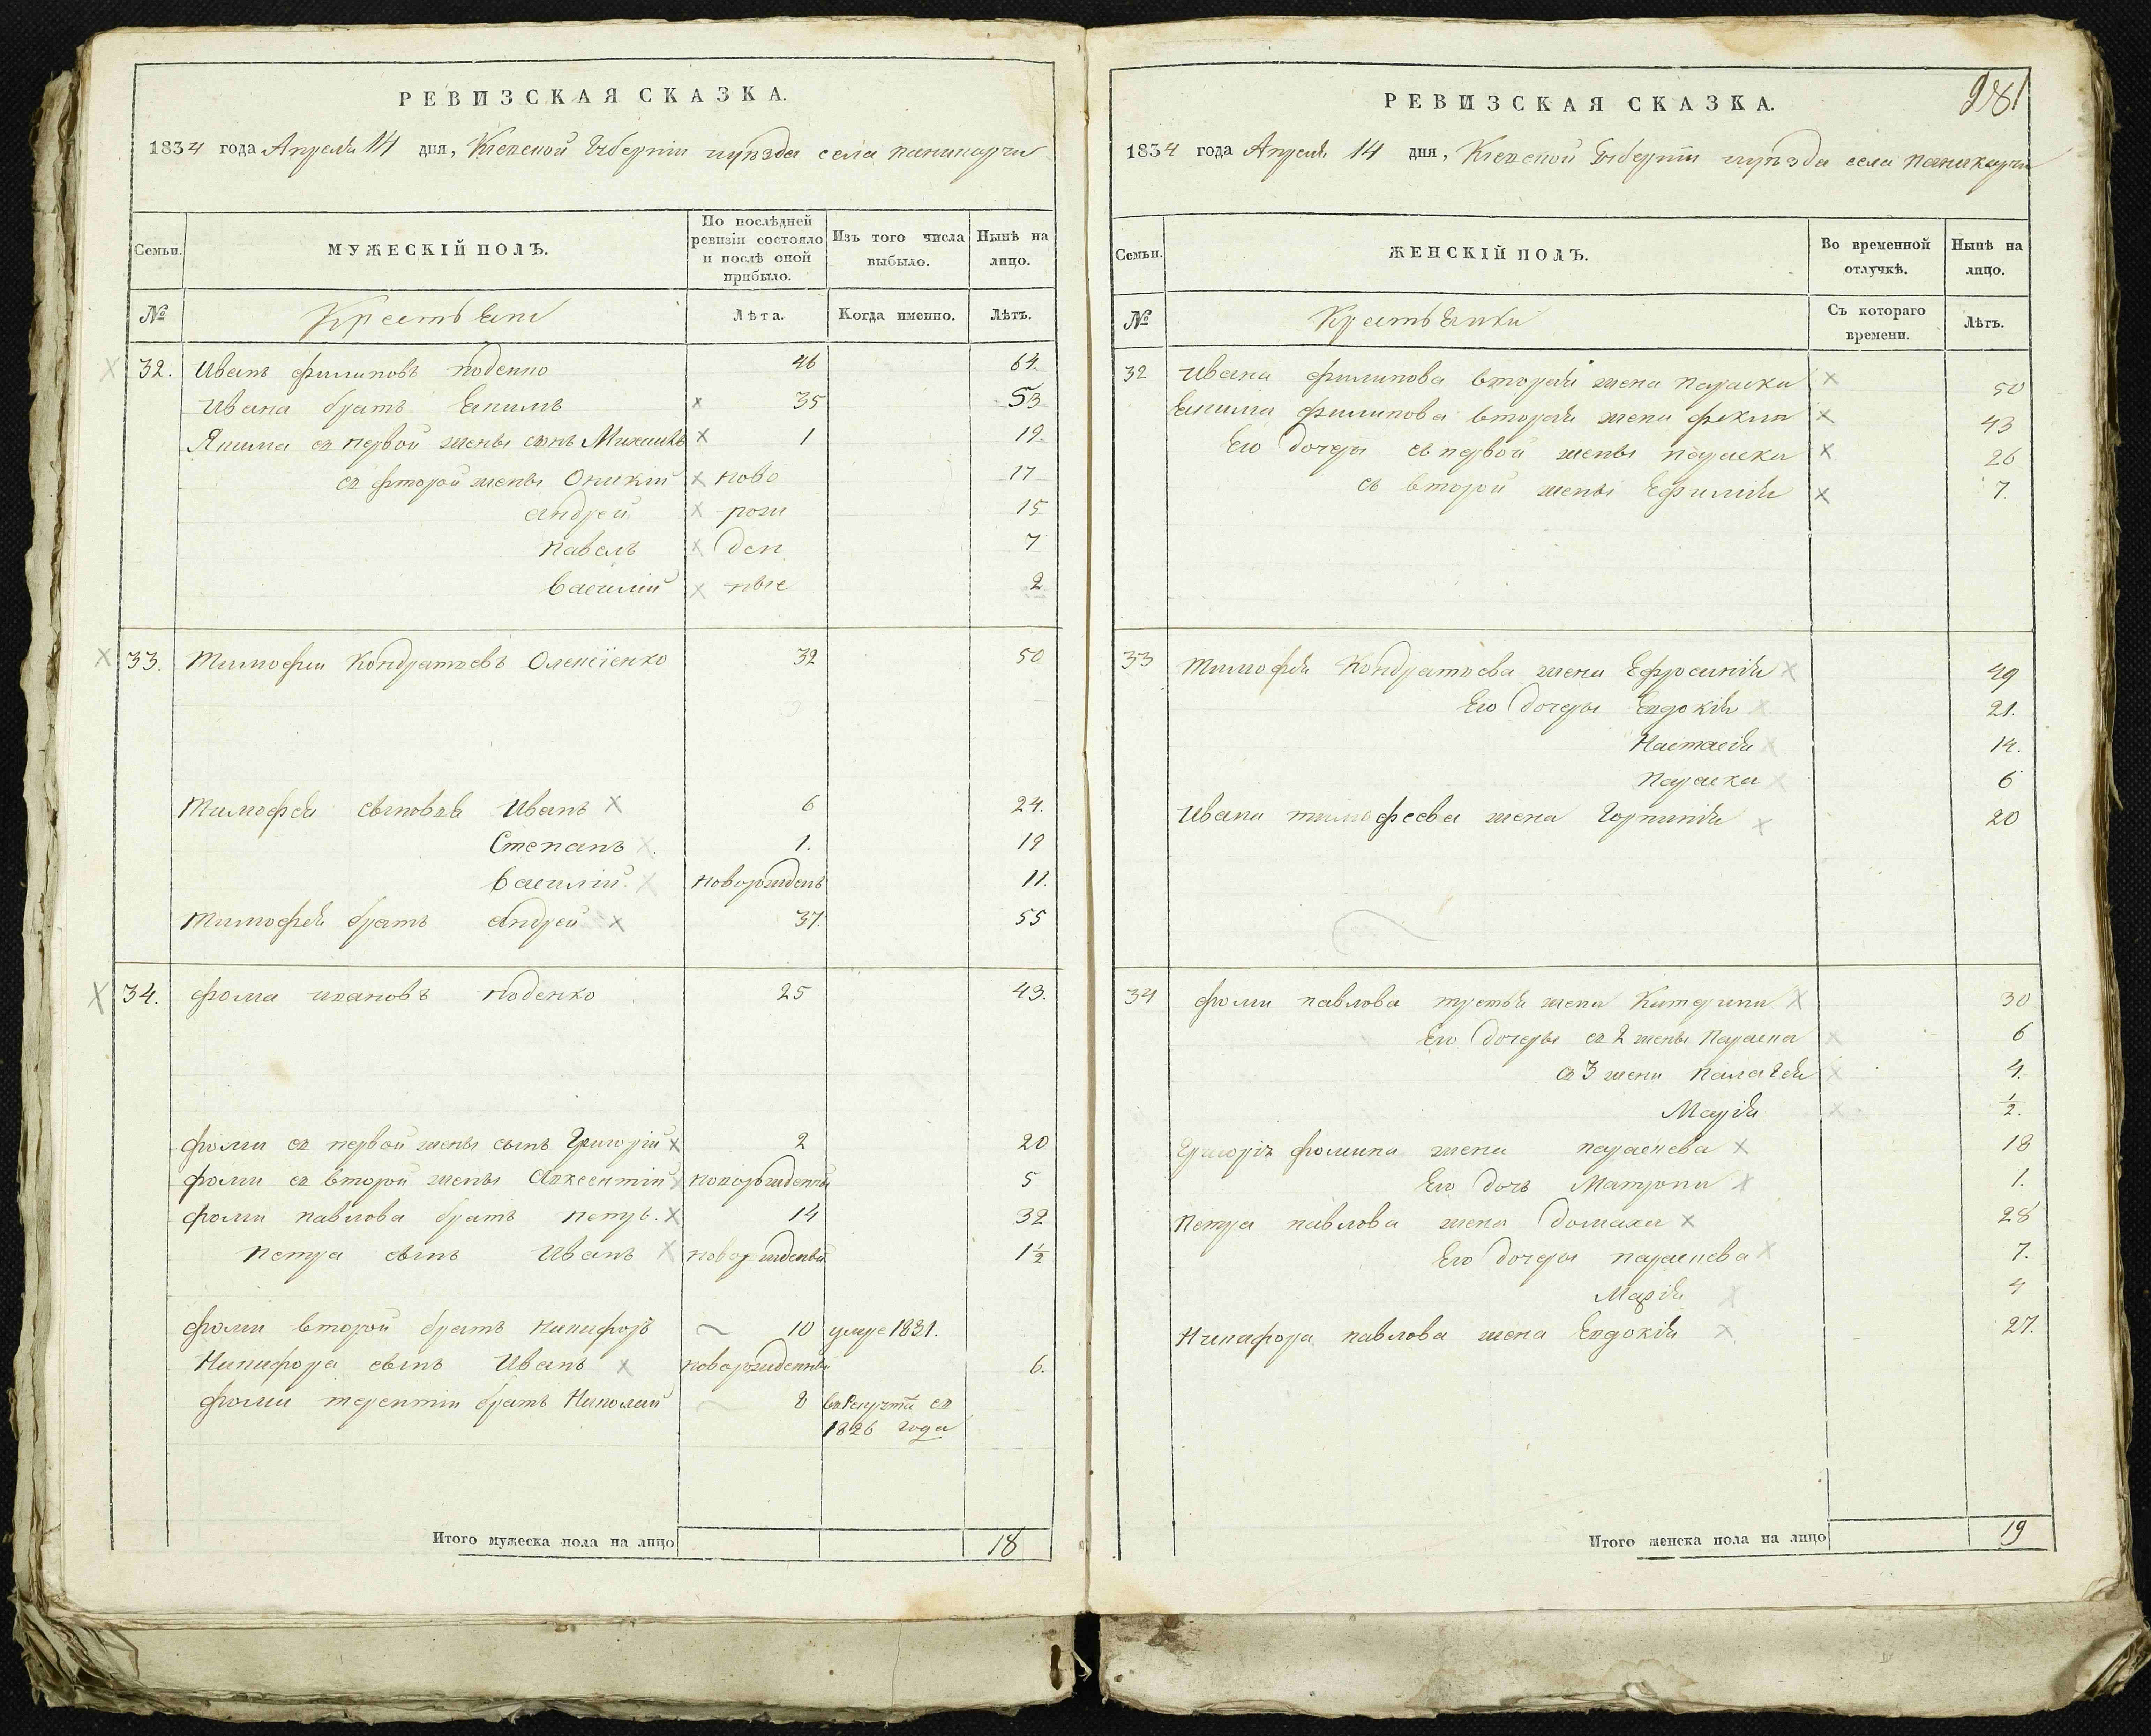 РЕВИЗСКАЯ СКАЗКА.
1834 года Апреля 14 дня, Кіевской Губерніи уѣзда села паникарчи
Семьи.
МУЖЕСКІЙ ПОЛЪ.
По послѣдней ревизіи состояло и послѣ оной прибыло.
Изъ того числа выбыло.
Нынѣ на лицо.
№
Крестьяни
Лѣта.
Когда именно.
Лѣтъ.
32. Иванъ филиповъ 46 64.
Ивана братъ Екимъ 35 53
Якима съ первой жены сынъ 1 19.
съ фторой жены Оникій ново 17
андрей рож 15
павелъ ден 7
василій ные 2
33. тимофей Кондратьевъ Олексіенко 32 50
тимофея сыновья Иванъ 6 24.
Степанъ 1. 19
василій. новорожденъ 11.
тимофея братъ андрей 37. 55
34. фома ивановъ 25 43.
фоми съ первой жены сынъ Григорій 2 20
фоми съ второй жены Авксентій новорожденный 5
фоми павлова братъ петръ. 14 32
петра сынъ Иванъ новорожденый 1½
фоми второй братъ никифоръ 10 умре 1831.
Никифора сынъ Иванъ новорожденный 6.
фоми терентіи братъ Николай 8 съ
1826 года
Итого мужеска пола на лицо 18
981
РЕВИЗСКАЯ СКАЗКА.
1834 года Апреля 14 дня, Кіевской Губерніи уѣзда села паникарчи
Семьи.
ЖЕНСКІЙ ПОЛЪ.
Во временной отлучкѣ.
Нынѣ на лицо.
№
Крестьянки
Съ котораго времени.
Лѣтъ.
32 Ивана филипова вторая жена параска 50
Екима филипова вторая жена фекла 43
Его дочеры съ первой жены параска 26
съ второй жены Ефимія 7.
33 тимофея Кондратьева жена Ефросинія 49
Его дочеры Евдокія 21.
Настасія 14.
параска 6
Ивана тимофеева жена Горпинія 20
34 фоми павлова третья жена Катерина 30
Его дочеры съ 2 жены Параска 6
съ 3 жени палагея 4.
Марія ½.
Григорія фомина жена 18
Его дочь Матрона 1.
Петра павлова жена домаха 28
Его дочеры 7.
Марія 4
Никифора павлова жена Евдокія 27.
Итого женска пола на лицо 19